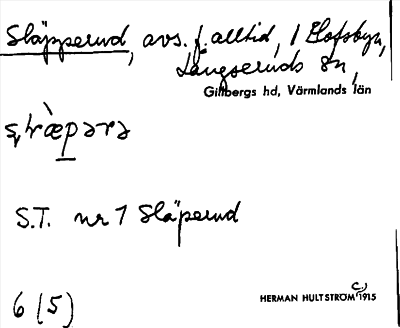 Släpperud, avs. f. alltid, i Elofsbyn,
Långseruds sn,
Gillbergs hd, Värmlands län
S.T. nr 1 Släperud
6 (5)
HERMAN HULTSTRÖM C) 1915